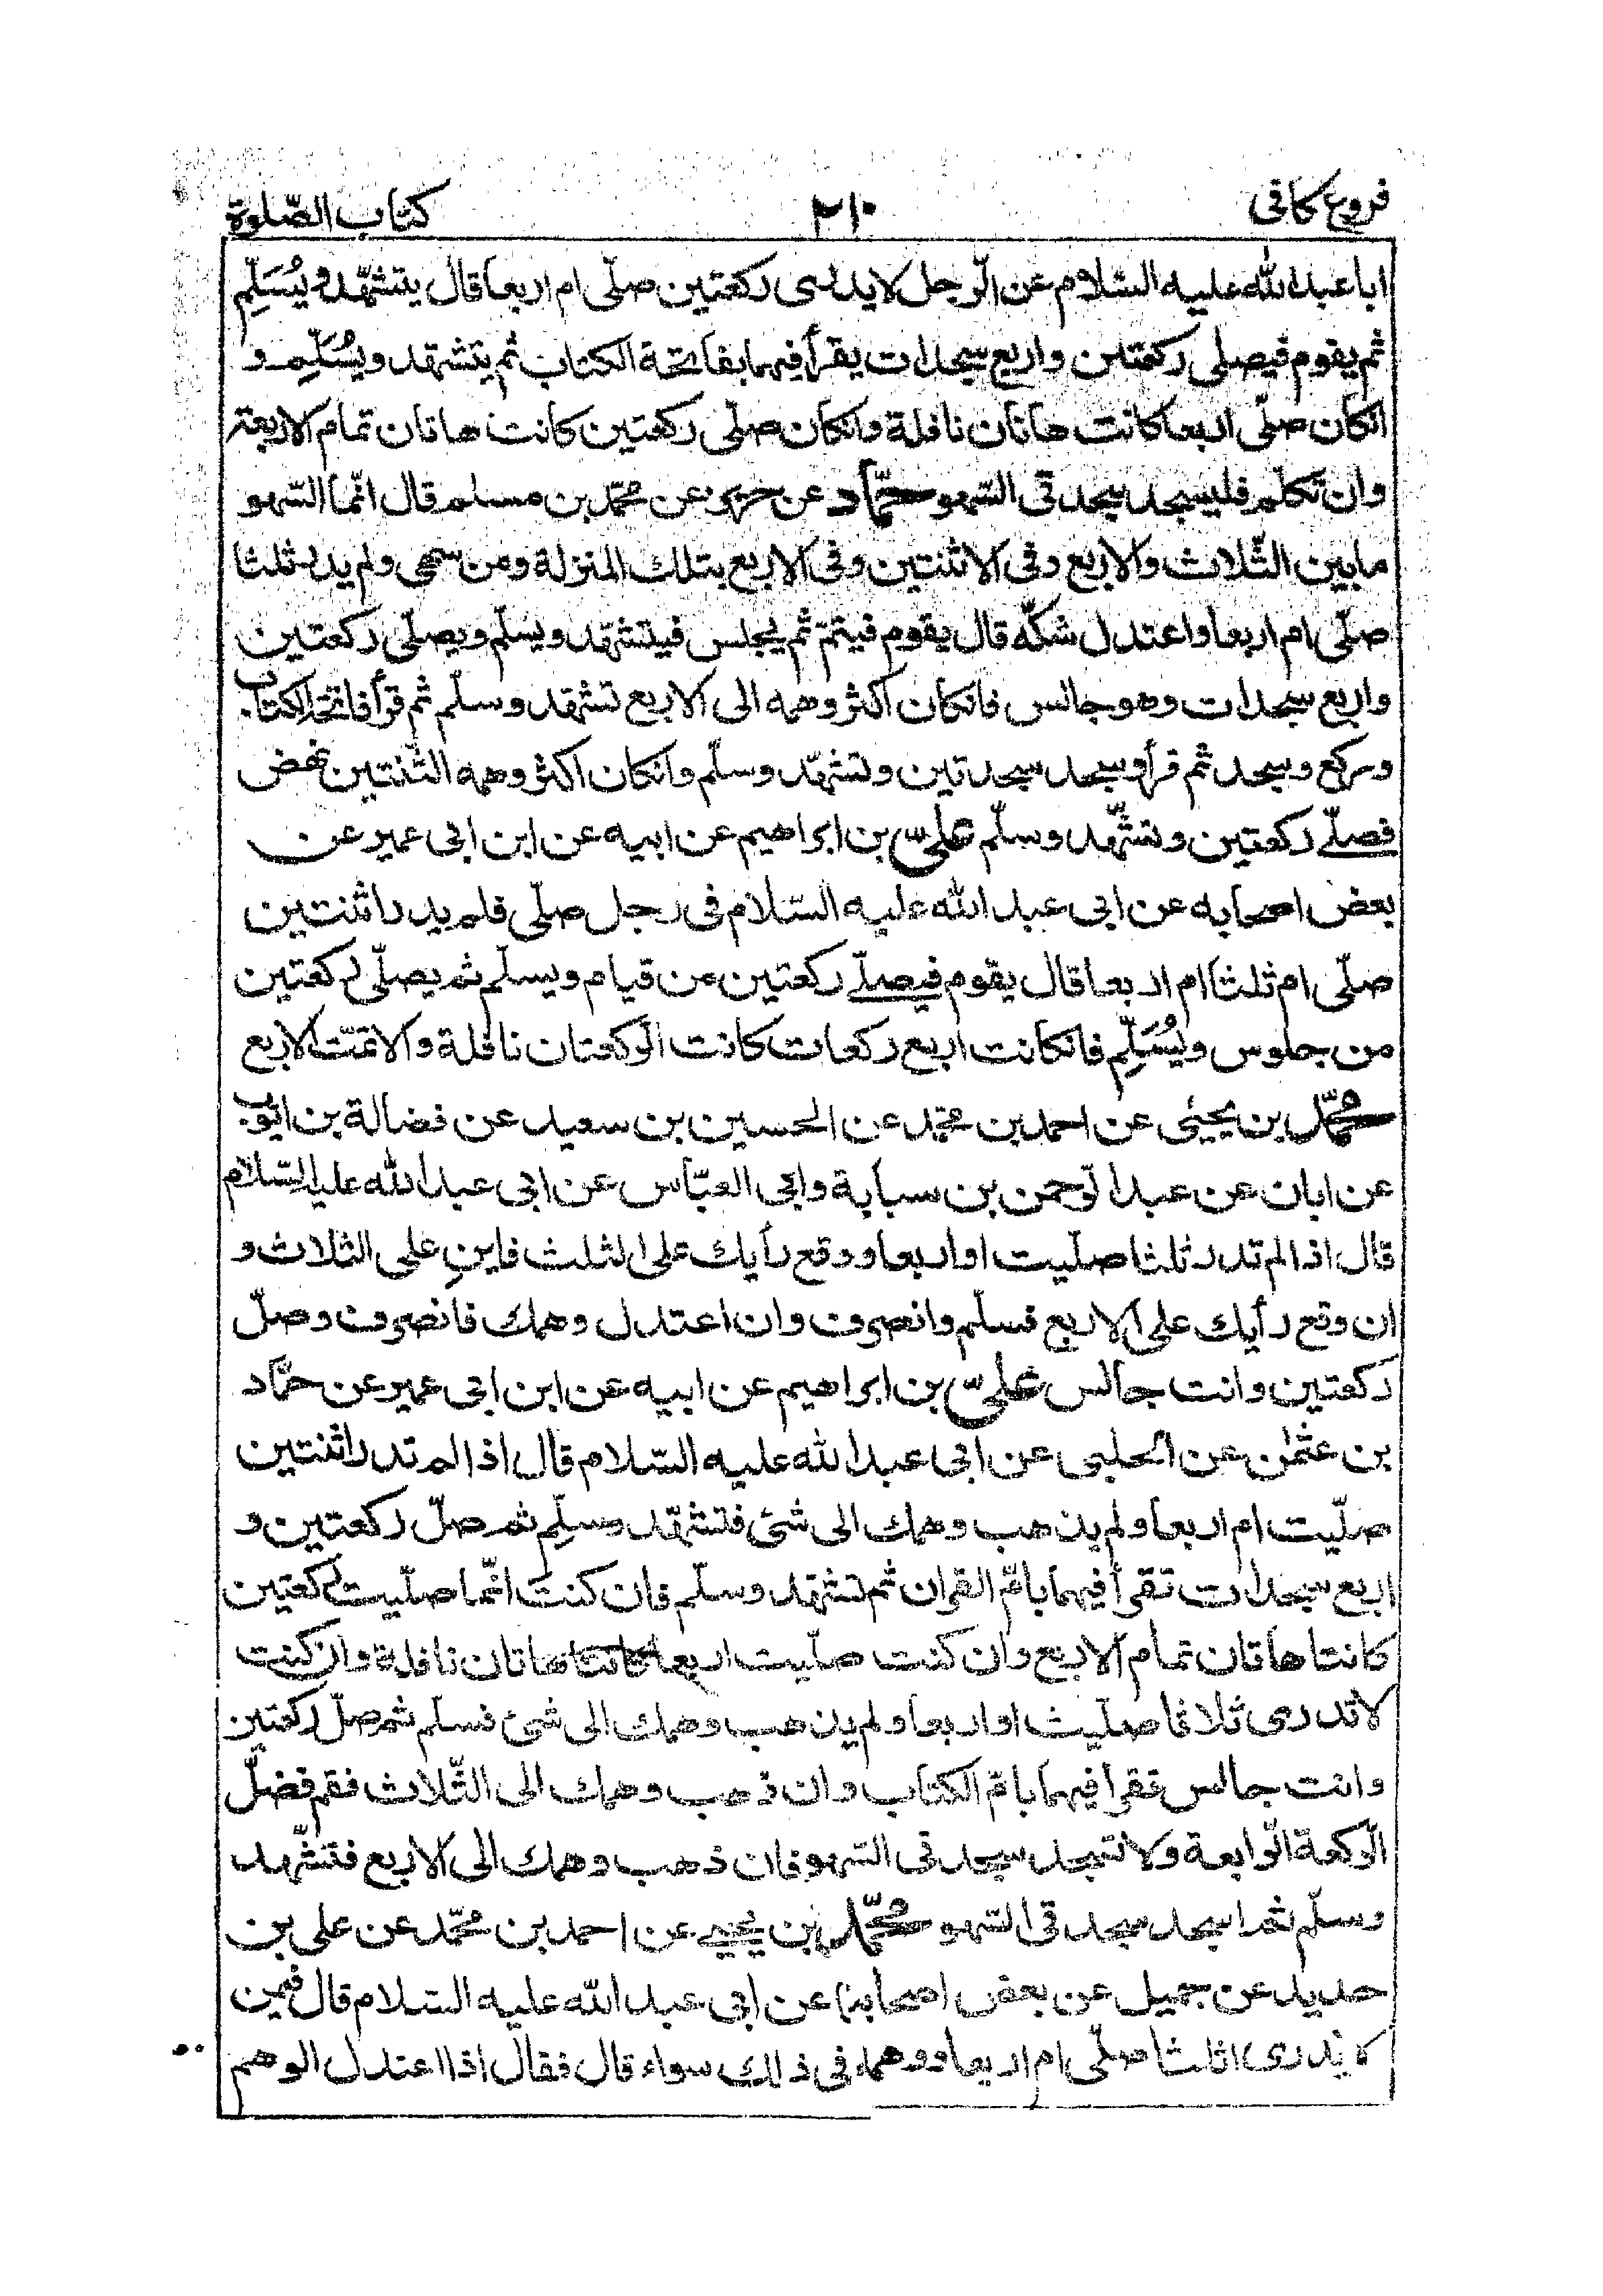 فروع كافى ٢١٠ كتاب الصّلوة
ابا عبد الله عليه السّلام عن الرّجل لا يدرى ركعتين صلّى ام اربعا قال يتشهّد ويُسَلِّم
ثم يقوم فيصلى ركعتين واربع سجدات يقرأ فيهما بفاتحة الكتاب ثم يتشهد ويُسَلِّم و
انكان صلّى اربعا كانت هاتان نافلة وانكان صلّى ركعتين كانت هاتان تمام الاربعة
وان تكلّم فليسجد سجدتى السّهو حمّاد عن حريز عن محمّد بن مسلم قال انّما السّهو
ما بين الثّلاث والاربع وفى الاثنتين وفى الاربع بتلك المنزلة ومن سهى ولم يدر ثلثا
صلّى ام اربعا واعتدل شكّه قال يقوم فيتمّ ثم يجلس فيتشهّد ويسلّم ويصلّى ركعتين
واربع سجدات وهو جالس فانكان اكثر وهمه الى الاربع تشهّد وسلّم ثم قرأ فاتحة الكتاب
وركع وسجد ثم قرأ وسجد سجدتين وتشهّد وسلّم وانكان اكثر وهمه الثّنتين نهض
فصلّے ركعتين وتشهّد وسلّم علىّ بن ابراهيم عن ابيه عن ابن ابى عمير عن
بعض اصحابه عن ابى عبد الله عليه السّلام فى رجل صلّى فلم يدر اثنتين
صلّى ام ثلثا ام اربعا قال يقوم فيصلّے ركعتين من قيام ويسلّم ثم يصلّى ركعتين
من جلوس ويُسَلِّم فانكانت اربع ركعات كانت الرّكعتان نافلة والا تمّت الاربع
محمّد بن يحيى عن احمد بن محمّد عن الحسين بن سعيد عن فضالة بن ايّوب
عن ابان عن عبد الرّحمن بن سيابة وابى العبّاس عن ابى عبد الله عليه السّلام
قال اذا لم تدر ثلثا صلّيت او اربعا ووقع رأيك على الثلث فابنِ على الثلاث و
ان وقع رأيك على الاربع فسلّم وانصرف وان اعتدل وهمك فانصرف وصلّ
ركعتين وانت جالس علىّ بن ابراهيم عن ابيه عن ابن ابى عمير عن حمّاد
بن عثمٰن عن الحلبى عن ابى عبد الله عليه السّلام قال اذا لم تدر اثنتين
صلّيت ام اربعا ولم يذهب وهمك الى شئ فتشهّد وسلّم ثم صلّ ركعتين و
اربع سجدات تقرأ فيهما بامّ القران ثم تشهّد وسلّم فان كنت انّما صلّيت ركعتين
كانتا هاتان تمام الاربع وان كنت صلّيت اربعا كانتا هاتان نافلة وان كنت
لا تدرى ثلاثا صلّيت او اربعا ولم يذهب وهمك الى شئ فسلّم ثم صلّ ركعتين
وانت جالس تقرأ فيهما بامّ الكتاب وان ذهب وهمك الى الثّلاث فقم فصلّ
الرّكعة الرّابعة ولا تسجد سجدتى السّهو فان ذهب وهمك الى الاربع فتشهّد
وسلّم ثم اسجد سجدتى السّهو محمّد بن يحيے عن احمد بن محمّد عن على بن
حديد عن جميل عن بعض اصحابنا عن ابى عبد الله عليه السّلام قال فيمن
لا يدرى اثلثا صلّى ام اربعا ووهمه فى ذلك سواء قال فقال اذا اعتدل الوهم